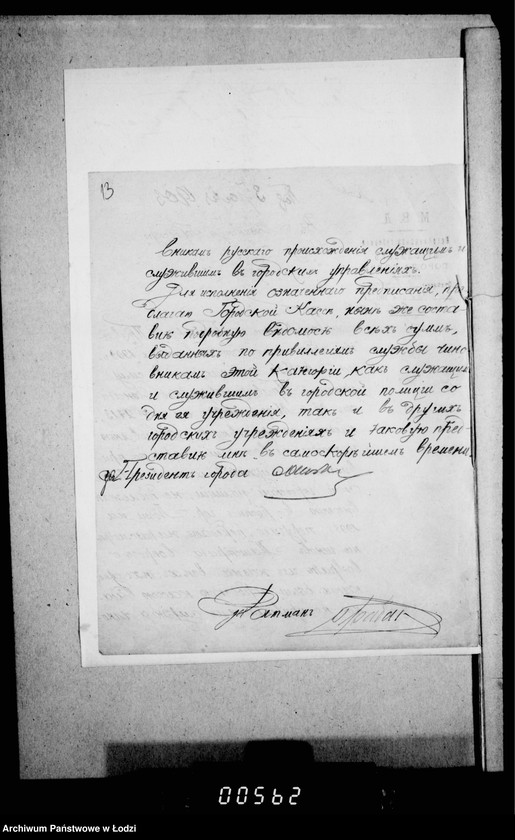 13
вникамъ русскаго происхожденія служащимъ и
служившимъ въ городскихъ управленіяхъ.
Для исполненія означеннаго предписанія, пред
лагаю Городской Кассѣ, нынѣ же соста
вить вѣдомость всѣхъ суммъ,
выданныхъ по привиллегіямъ службы чино
вникамъ этой категоріи, какъ служащимъ
и служившимъ въ городской полиціи со
дня ея учрежденія, такъ и въ другихъ
городскихъ учрежденіяхъ и таковую пред
ставить мнѣ въ самоскорѣйшемъ времени
Президентъ города
00562
Archiwum Państwowe w Łodzi